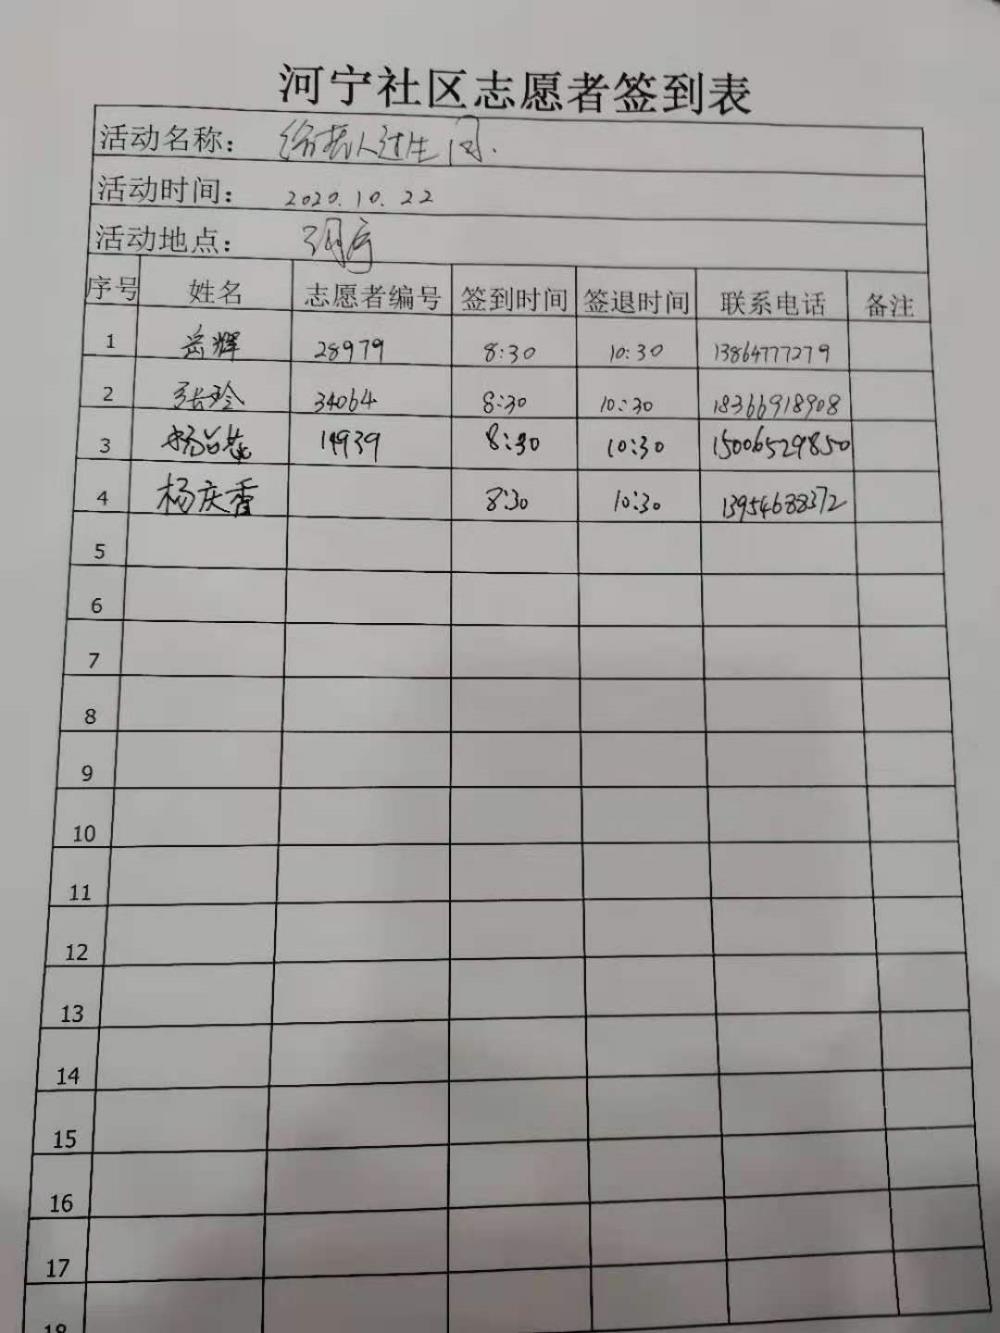 河宁社区志愿者签到表
活动名称： 给老人过生日.
活动时间： 2020.10.22
活动地点：
序号 姓名 志愿者编号 签到时间 签退时间 联系电话 备注
1 岳辉 28979 8:30 10:30 13864777279
2 张玲 34064 8:30 10:30 18366918908
3 19939 8:30 10:30 15006529850
4 杨庆香 8:30 10:30 13954688372
5
6
7
8
9
10
11
12
13
14
15
16
17
18